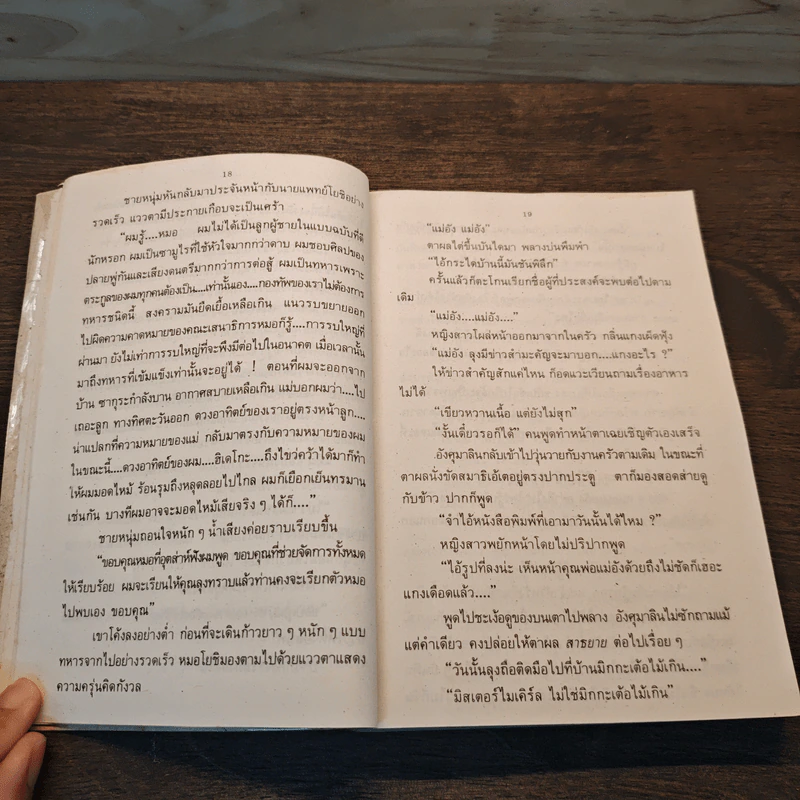 18
ชายหนุ่มหันกลับมาประจันหน้ากับนายแพทย์โยชิอย่าง
รวดเร็ว แววตามีประกายเกือบจะเป็นเศร้า
“ผมรู้....หมอ ผมไม่ได้เป็นลูกผู้ชายในแบบฉบับที่ดี
นักหรอก ผมเป็นซามูไรที่ใช้หัวใจมากกว่าดาบ ผมชอบศิลปของ
ปลายพู่กันและเสียงดนตรีมากกว่าการต่อสู้ ผมเป็นทหารเพราะ
ตระกูลของผมทุกคนต้องเป็น....เท่านั้นเอง....กองทัพของเราไม่ต้องการ
ทหารชนิดนี้ สงครามมันยืดเยื้อเหลือเกิน แนวรบขยายออก
ไปผิดความคาดหมายของคณะเสนาธิการหมอก็รู้....การรบใหญ่ที่
ผ่านมา ยังไม่เท่าการรบใหญ่ที่จะพึงมีต่อไปในอนาคต เมื่อเวลานั้น
มาถึงทหารที่เข้มแข็งเท่านั้นจะอยู่ได้ ! ตอนที่ผมจะออกจาก
บ้าน ซากุระกำลังบาน อากาศสบายเหลือเกิน แม่บอกผมว่า....ไป
เถอะลูก ทางทิศตะวันออก ดวงอาทิตย์ของเราอยู่ตรงหน้าลูก....
น่าแปลกที่ความหมายของแม่ กลับมาตรงกับความหมายของผม
ในขณะนี้....ดวงอาทิตย์ของผม....ฮิเดโกะ....ถึงไขว่คว้าได้มาก็ทำ
ให้ผมมอดไหม้ ร้อนรุมถึงหลุดลอยไปไกล ผมก็เยือกเย็นทรมาน
เช่นกัน บางทีผมอาจจะมอดไหม้เสียจริง ๆ ได้ก็....”
ชายหนุ่มถอนใจหนัก ๆ น้ำเสียงค่อยราบเรียบขึ้น
“ขอบคุณหมอที่อุตส่าห์ฟังผมพูด ขอบคุณที่ช่วยจัดการทั้งหมด
ให้เรียบร้อย ผมจะเรียนให้คุณลุงทราบแล้วท่านคงจะเรียกตัวหมอ
ไปพบเอง ขอบคุณ”
เขาโค้งลงอย่างต่ำ ก่อนที่จะเดินก้าวยาว ๆ หนัก ๆ แบบ
ทหารจากไปอย่างรวดเร็ว หมอโยชิมองตามไปด้วยแววตาแสดง
ความครุ่นคิดกังวล
19
“แม่อัง แม่อัง”
ตาผลไต่ขึ้นบันไดมา พลางบ่นพึมพำ
“ไอ้กระไดบ้านนี้มันชันพิลึก”
ครั้นแล้วก็ตะโกนเรียกชื่อผู้ที่ประสงค์จะพบต่อไปตาม
เดิม
“แม่อัง....แม่อัง....”
หญิงสาวโผล่หน้าออกมาจากในครัว กลิ่นแกงเผ็ดฟุ้ง
“แม่อัง ลุงมีข่าวสำมะคัญจะมาบอก....แกงอะไร ?”
ให้ข่าวสำคัญสักแค่ไหน ก็อดแวะเวียนถามเรื่องอาหาร
ไม่ได้
“เขียวหวานเนื้อ แต่ยังไม่สุก”
“งั้นเดี๋ยวรอก็ได้” คนพูดทำหน้าตาเฉยเชิญตัวเองเสร็จ
อังศุมาลินกลับเข้าไปวุ่นวายกับงานครัวตามเดิม ในขณะที่
ตาผลนั่งขัดสมาธิเอ้เตอยู่ตรงปากประตู ตาก็มองสอดส่ายดู
กับข้าว ปากก็พูด
“จำไอ้หนังสือพิมพ์ที่เอามาวันนั้นได้ไหม ?”
หญิงสาวพยักหน้าโดยไม่ปริปากพูด
“ไอ้รูปที่ลงน่ะ เห็นหน้าคุณพ่อแม่อังด้วยถึงไม่ชัดก็เฮอะ
แกงเดือดแล้ว....”
พูดไปชะเง้อดูของบนเตาไปพลาง อังศุมาลินไม่ซักถามแม้
แต่คำเดียว คงปล่อยให้ตาผล สาธยาย ต่อไปเรื่อย ๆ
“วันนั้นลุงถือติดมือไปที่บ้านมิกกะเต้อไม้เกิน....”
“มิสเตอร์ไมเคิร์ล ไม่ใช่มิกกะเต้อไม้เกิน”